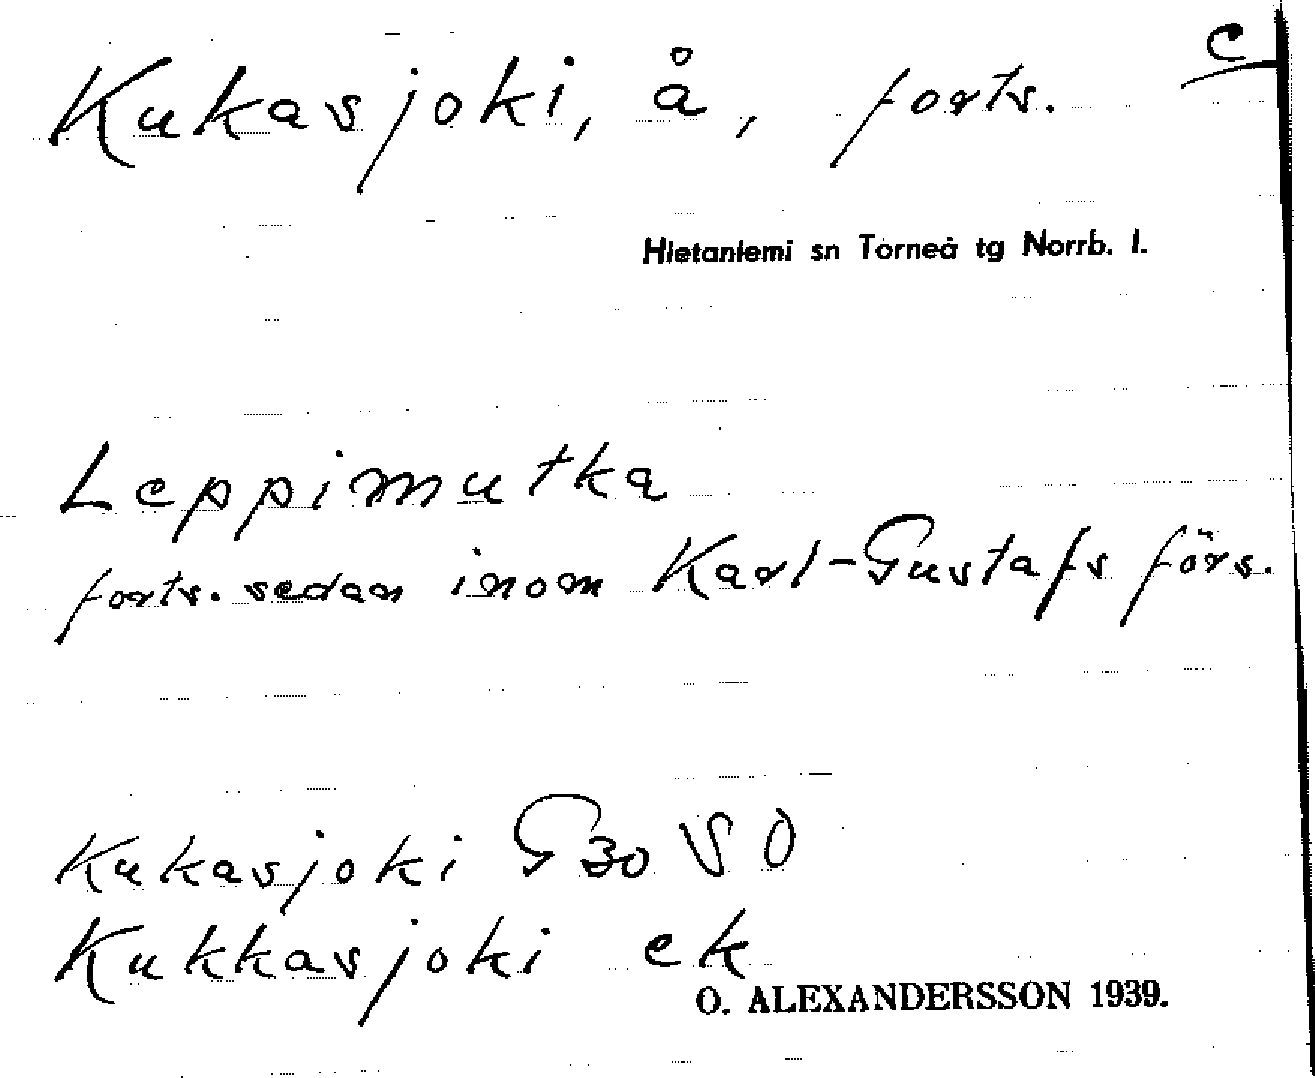 c
Kukasjoki, å, forts.
Hietaniemi sn Torneå tg Norrb. l.
Leppimutka
forts. sedan inom Karl-Gustafs förs.
Kukasjoki G30 SO
Kukkasjoki ek
O. ALEXANDERSSON 1939.